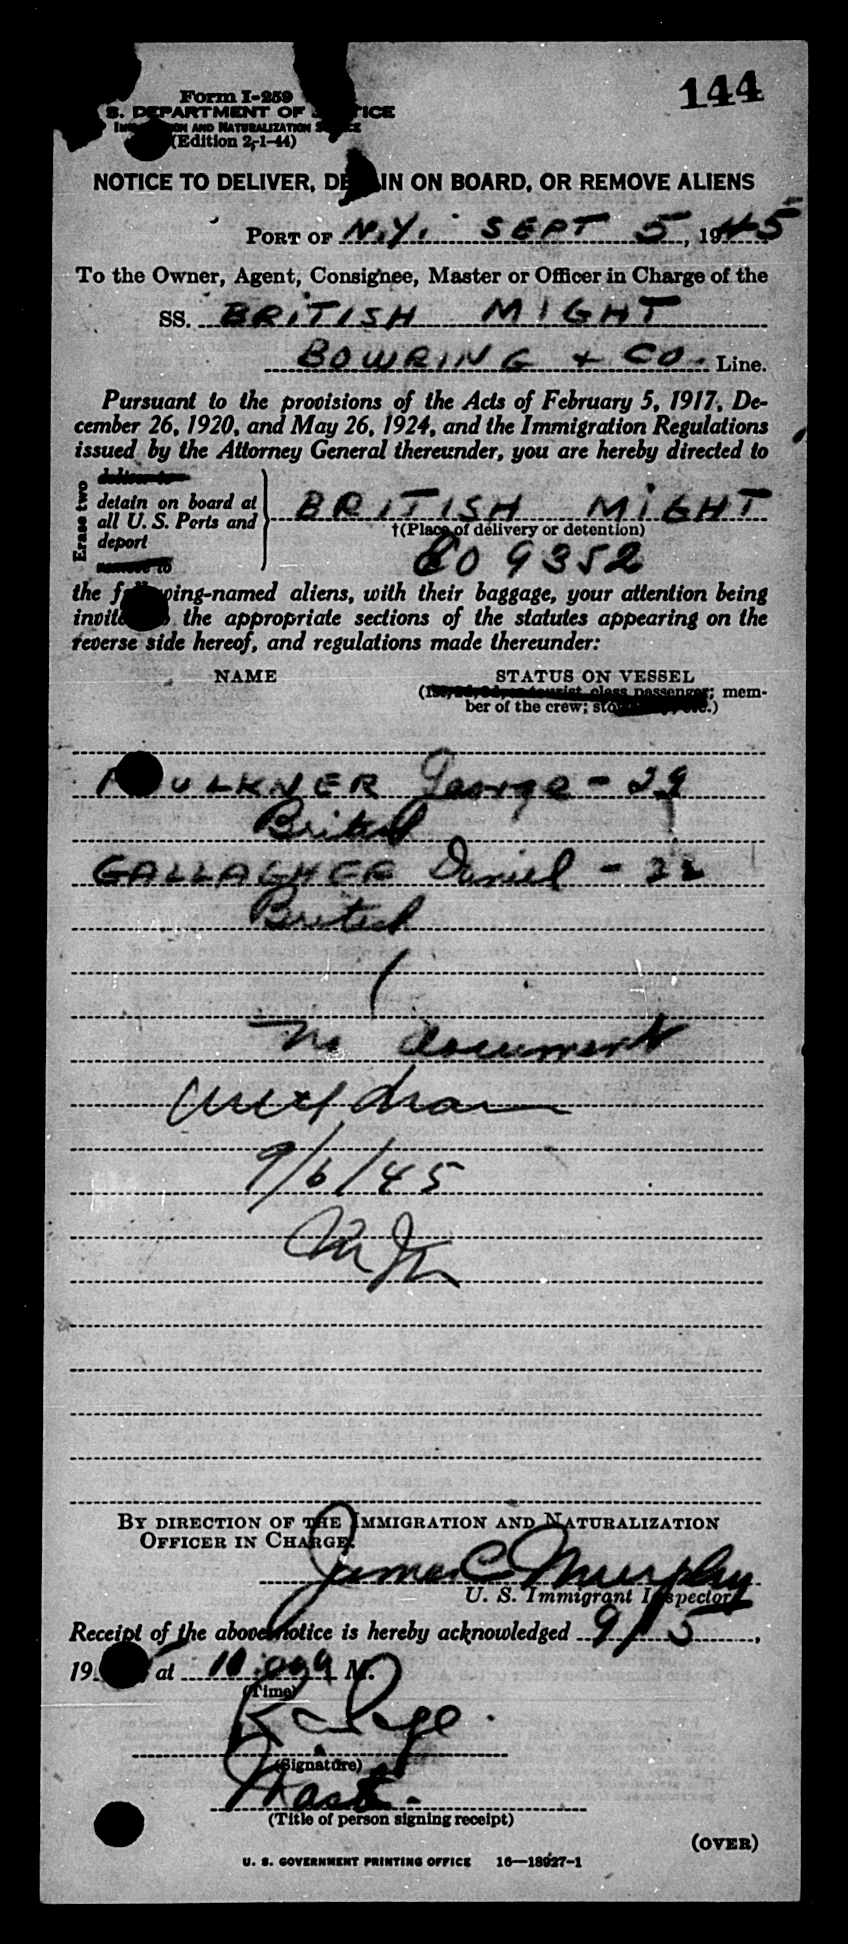 144
Form I-259
S. DEPARTMENT OF JUSTICE
IMMIGRATION AND NATURALIZATION SERVICE
(Edition 2-1-44)
NOTICE TO DELIVER, DETAIN ON BOARD, OR REMOVE ALIENS
PORT OF N.Y. SEPT 5, 1945
To the Owner, Agent, Consignee, Master or Officer in Charge of the
SS. BRITISH MIGHT
BOWRING + CO. Line.
Pursuant to the provisions of the Acts of February 5, 1917, De-
cember 26, 1920, and May 26, 1924, and the Immigration Regulations
issued by the Attorney General thereunder, you are hereby directed to
Erase two
deliver to
detain on board at
all U. S. Ports and
deport
remove to
BRITISH MIGHT
†(Place of delivery or detention)
809352
the following-named aliens, with their baggage, your attention being
invited to the appropriate sections of the statutes appearing on the
reverse side hereof, and regulations made thereunder:
NAME STATUS ON VESSEL
(1st, 2d, 3d, or tourist class passenger; mem-
ber of the crew; stowaway, etc.)
FAULKNER George - 29
British
GALLAGHER Daniel - 22
British
No document
9/6/45
BY DIRECTION OF THE IMMIGRATION AND NATURALIZATION
OFFICER IN CHARGE.
James C Murphy
U. S. Immigrant Inspector
Receipt of the above notice is hereby acknowledged 9/5,
19 at 10 M.
(Time)
R Page
(Signature)
Mast.
(Title of person signing receipt)
(OVER)
U. S. GOVERNMENT PRINTING OFFICE 16—18927-1